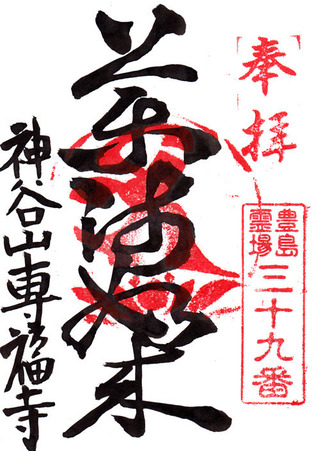 奉拝
豊島
霊場
三十九番
薬師如来
神谷山専福寺